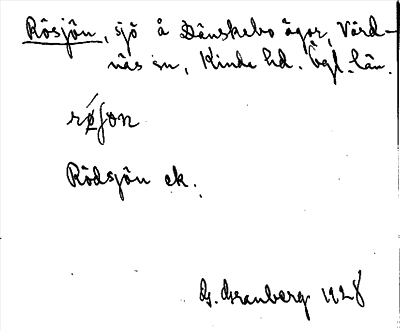 Rösjön, sjö å Dänskebo ägor, Vård-
näs sn, Kinda hd. Ögl. län.
røʃon
Rödsjön ek.
G. Granberg 1928